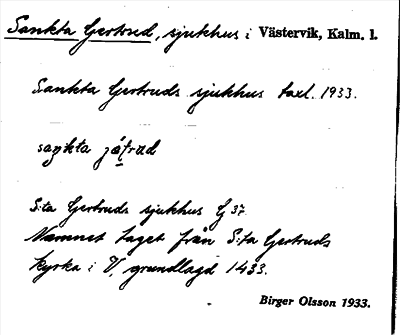 Sankta Gertrud, sjukhus i Västervik, Kalm. l.
Sankta Gertruds sjukhus taxl. 1933.
saŋkta
S:ta Gertruds sjukhus G 37.
Namnet taget från S:ta Gertruds
kyrka i V, grundlagd 1433.
Birger Olsson 1933.